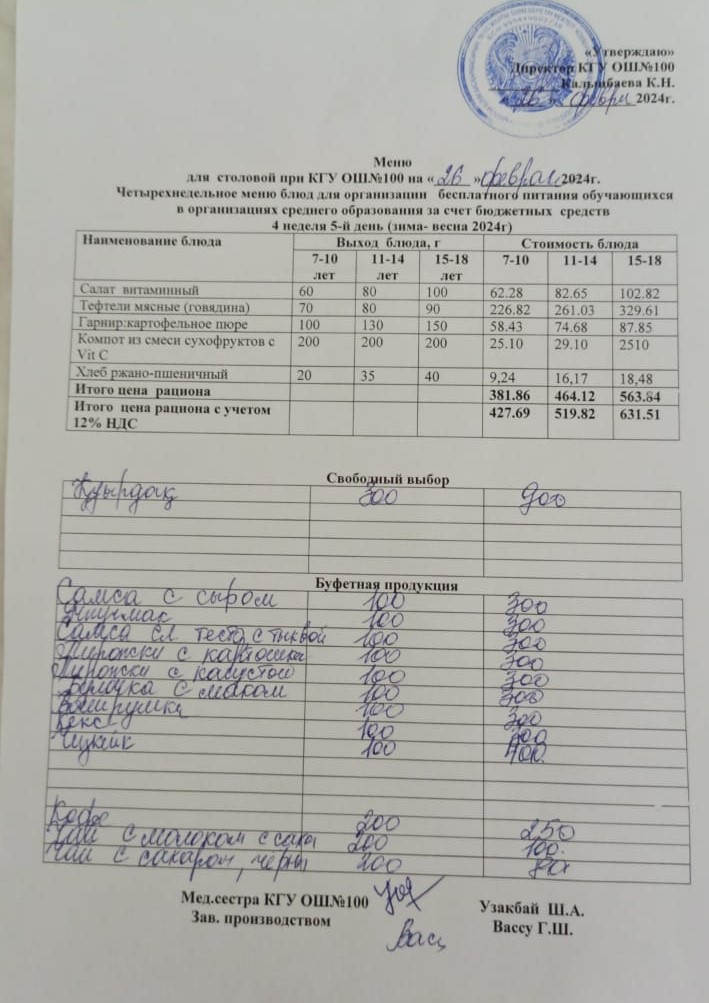 «Утверждаю»
Директор КГУ ОШ.№100
Калыбаева К.Н.
«26» февраль 2024г.
Меню
для столовой при КГУ ОШ.№100 на «26» феврал 2024г.
Четырехнедельное меню блюд для организации бесплатного питания обучающихся
в организациях среднего образования за счет бюджетных средств
4 неделя 5-й день (зима- весна 2024г)
Наименование блюда Выход блюда, г Стоимость блюда
7-10 лет 11-14 лет 15-18 лет 7-10 11-14 15-18
Салат витаминный 60 80 100 62.28 82.65 102.82
Тефтели мясные (говядина) 70 80 90 226.82 261.03 329.61
Гарнир:картофельное пюре 100 130 150 58.43 74.68 87.85
Компот из смеси сухофруктов с Vit C 200 200 200 25.10 29.10 2510
Хлеб ржано-пшеничный 20 35 40 9,24 16,17 18,48
Итого цена рациона 381.86 464.12 563.84
Итого цена рациона с учетом 12% НДС 427.69 519.82 631.51
Свободный выбор
Куырдақ 300 900
Буфетная продукция
Самса с сыром 100 300
100 300
Самса сл. тесто с тыквой 100 300
Пирожки с картошки 100 300
Пирожки с капустой 100 300
Булочка с маком 100 300
Ватрушка 100 300
Кекс 100
Чизкейк 100 400.
Кофе 200 250
Чай с молоком с саха 200 100.
Чай с сахаром, черн 200 80
Мед.сестра КГУ ОШ.№100 Узакбай Ш.А.
Зав. производством Вассу Г.Ш.